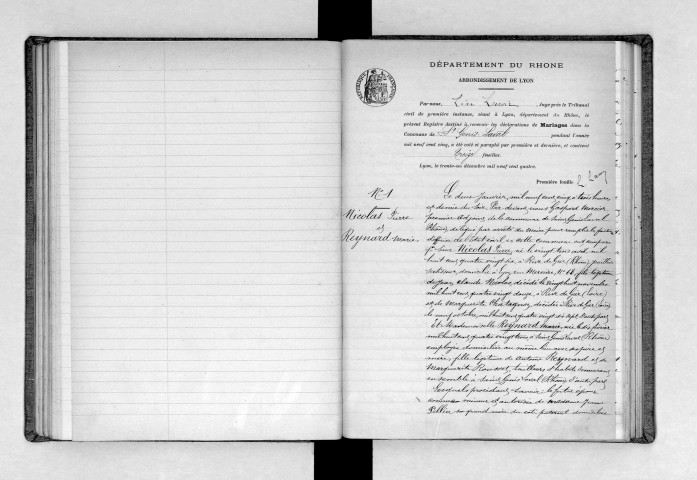 DÉPARTEMENT DU RHONE
ARRONDISSEMENT DE LYON
Par nous, Juge près le Tribunal
civil de première instance, séant à Lyon, département du Rhône, le
présent Registre destiné à recevoir les déclarations de Mariages dans la
Commune de St Genis Laval pendant l'année
mil neuf cent cinq, a été coté et paraphé par première et dernière, et contient
treize feuilles.
Lyon, le trente-un décembre mil neuf cent quatre.
Première feuille
N° 1
Nicolas Pierre
et
Reynard Marie
Le deux Janvier, mil neuf cent cinq à trois heures
et demie du soir, Par devant nous Gaspard
premier Adjoint de la commune de Saint Genis Laval
(Rhône), délégué par arrêté du maire pour remplir les fonctions
d'officier de l'état civil de cette commune ont comparu
Nicolas Pierre, né le vingt trois avril mil
huit cent quatre vingt six, à Rive de Gier (Rhône)
domicilié à Lyon rue Mercière, N° 68, fils légitime
de Jean Claude Nicolas, décédé le vingt huit novembre
mil huit cent quatre vingt douze, à Rive de Gier (Loire)
et de Marguerite décédée à Rive de Gier (Loire)
le neuf octobre, mil huit cent quatre vingt dix sept, d'une part
Et Mademoiselle Reynard Marie, née le dix février
mil huit cent quatre vingt trois, à Saint Genis Laval, Rhône
employée, domiciliée au même lieu avec ses père et
mère, fille légitime de Antoine Reynard et de
Marguerite tailleurs d'habits demeurant
ensemble à Saint Genis Laval (Rhône) d'autre part
Lesquels procédant, savoir : le futur époux
comme mineur et autorisé de Jeanne